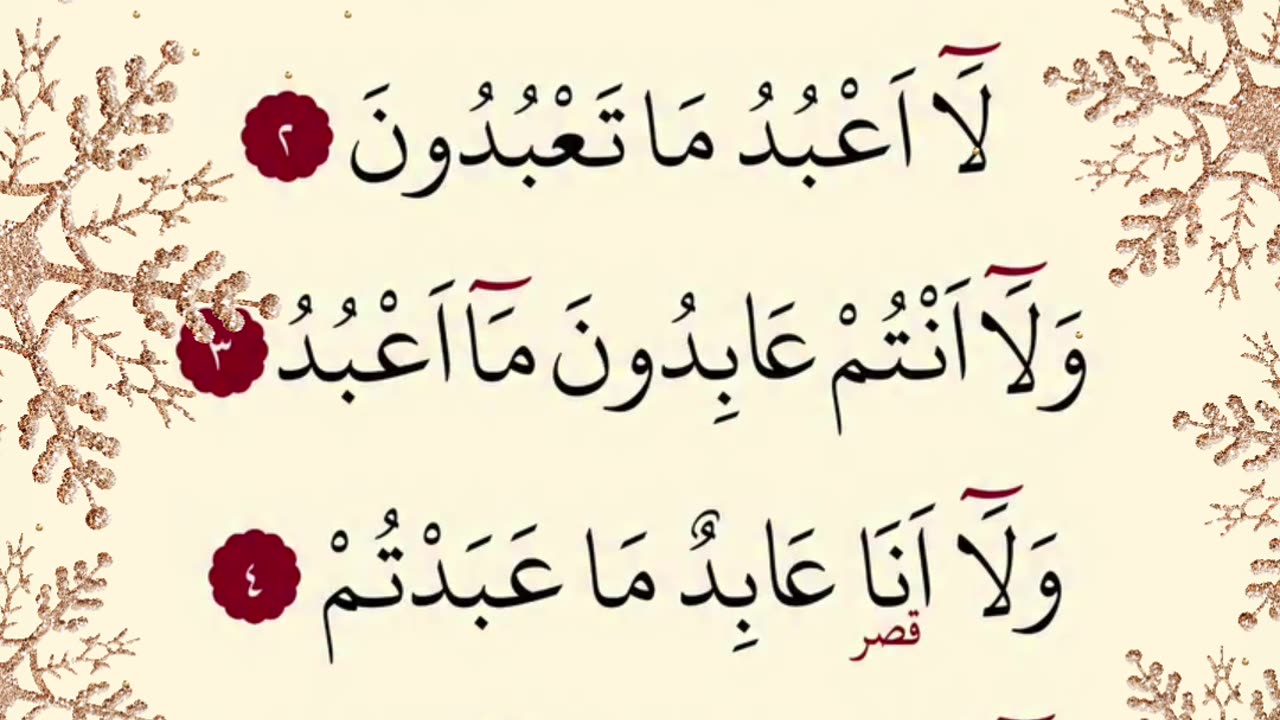 لَٓا اَعْبُدُ مَا تَعْبُدُونَ ٢
وَلَٓا اَنْتُمْ عَابِدُونَ مَٓا اَعْبُدُ ٣
وَلَٓا اَنَا عَابِدٌ مَا عَبَدْتُمْ ٤
قصر